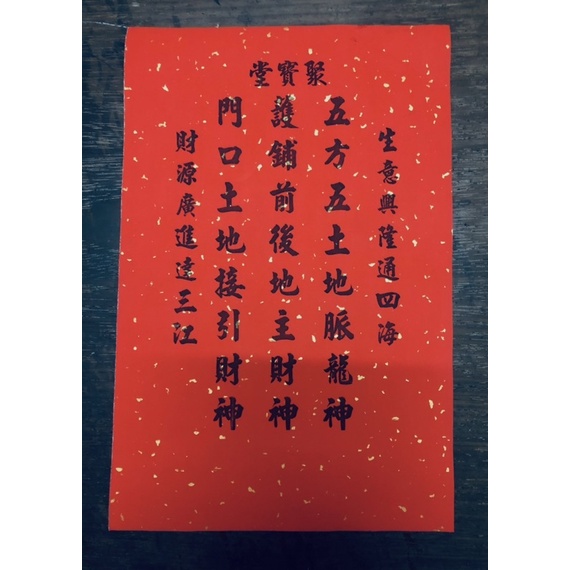 聚寶堂
生意興隆通四海
五方五土地脈龍神
護鋪前後地主財神
門口土地接引財神
財源廣進達三江